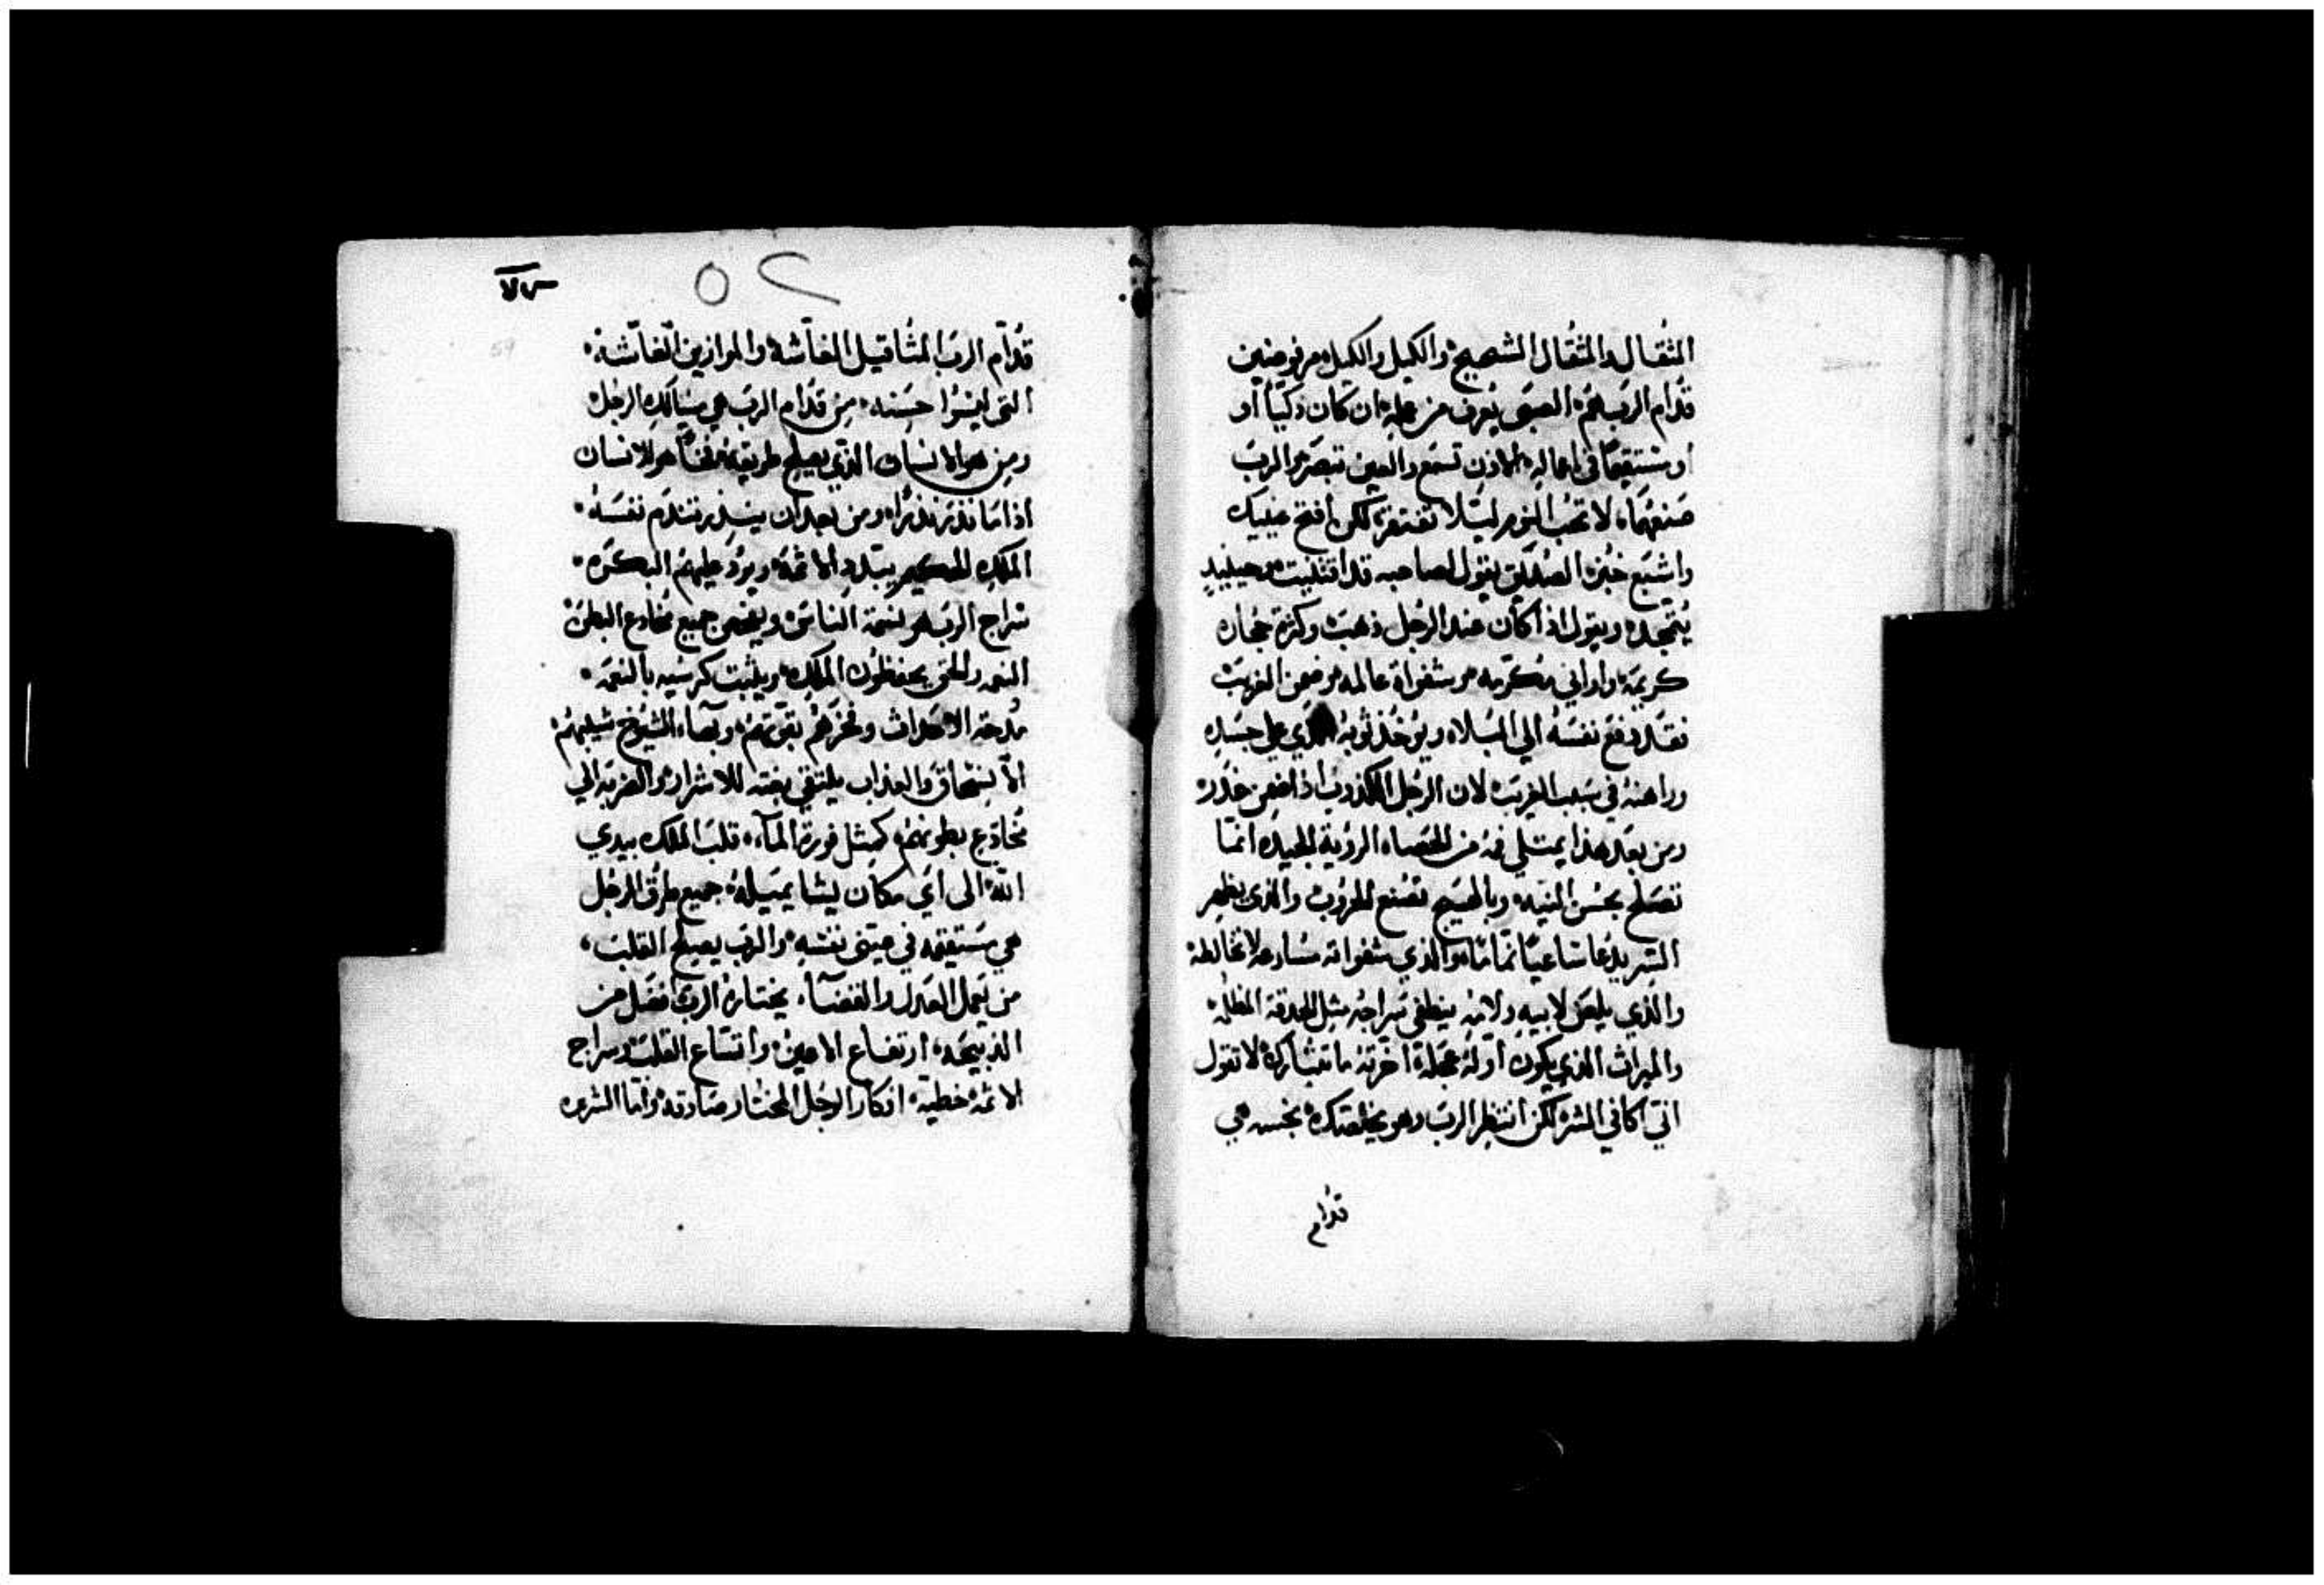 المثقال والمثقال الشحيح والكيل والكيل مرفوضين
قدام الرب لهم الصبي يعرف من عمله ان كان ذكيا او
او مستقيما في اعماله الاذن تسمع والعين تبصر والرب
صنعهما لا تحب النوم ليلا تفتقر لكن افتح عينيك
واشبع خبز الصديق يقول لصاحبه قد اقتنيت وحينيد
يتمجد ويقول اذا كان عند الرجل ذهب وكثرة حجاره
كريمة واواني مكرمه شفواة عالمه من ضمن الغريب
فقد دفع نفسه الي البلاء ويوخذ ثوبه الذي علي جسده
وراهنه في سبب الغريب لان الرجل الكذوب اذا ضمن
ومن بعد هذا يمتلي فمه من الحصاء الروية الجيده انما
تصلح بحسن النيه تصنع الحروب والذي يظهر
السر والذي شفواته لا تخالطه
والذي يلعن لابيه ولامه ينطفي سراجه مثل الحدقة المظلمه
والميراث الذي يكون اوله عجلة اخرته ما تتبارك لا تقول
اني اكافي الشر لكن انتظر الرب وهو يخلصك نجسه هي
قدام
٥٢
59
قدام الرب المثاقيل الغاشه والموازين الغاشه
التي ليسوا حسنه من قدام الرب هي مسالك الرجل
ومن هو الانسان الذي يصلح طريقه فخا هو للانسان
اذا ما نذر نذرا ومن بعد ان ينذر تندم نفسه
الملك الحكيم يبدد الاثمة ويرد عليهم البكره
سراج الرب هو نسمة الناس ويفحص جميع مخادع البطن
النعمه والحق يحفظون الملك ويثبت كرسيه بالنعمه
مدحة الاحداث وفخرهم بقوتهم وبهاء الشيوخ شيبهم
الانسحاق والعذاب يلتقي بغته للاشرار والضربه الي
مخادع بطونهم كمثل فورة الماء قلب الملك بيدي
الله الى اي مكان يشا يميله جميع طرق الرجل
هي مستقيمه في عيني نفسه والرب يصلح القلب
من يعمل العدل والقضاء يختاره الرب افضل من
الذبيحه ارتفاع الاعين واتساع القلب وسراج
الاثمة خطية افكار الرجل المختار صادقه واما الشره